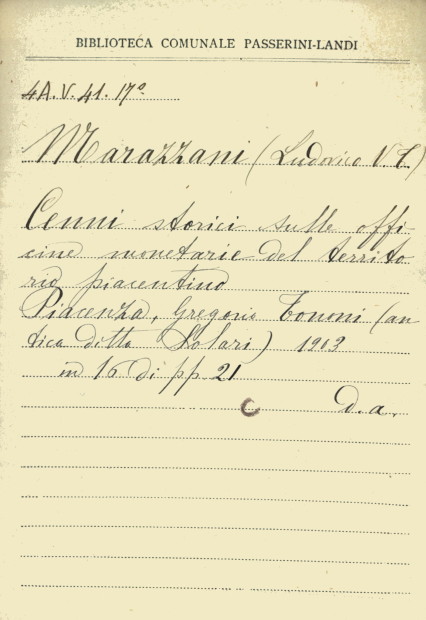 BIBLIOTECA COMUNALE PASSERINI-LANDI
4A.V.41.17º
Marazzani (Ludovico V.T.)
Cenni storici sulle offi-
cine monetarie del territo
rio piacentino
Piacenza, Gregorio Tononi (an
tica ditta Solari) 1903
in 16 di pp 21
d.a.